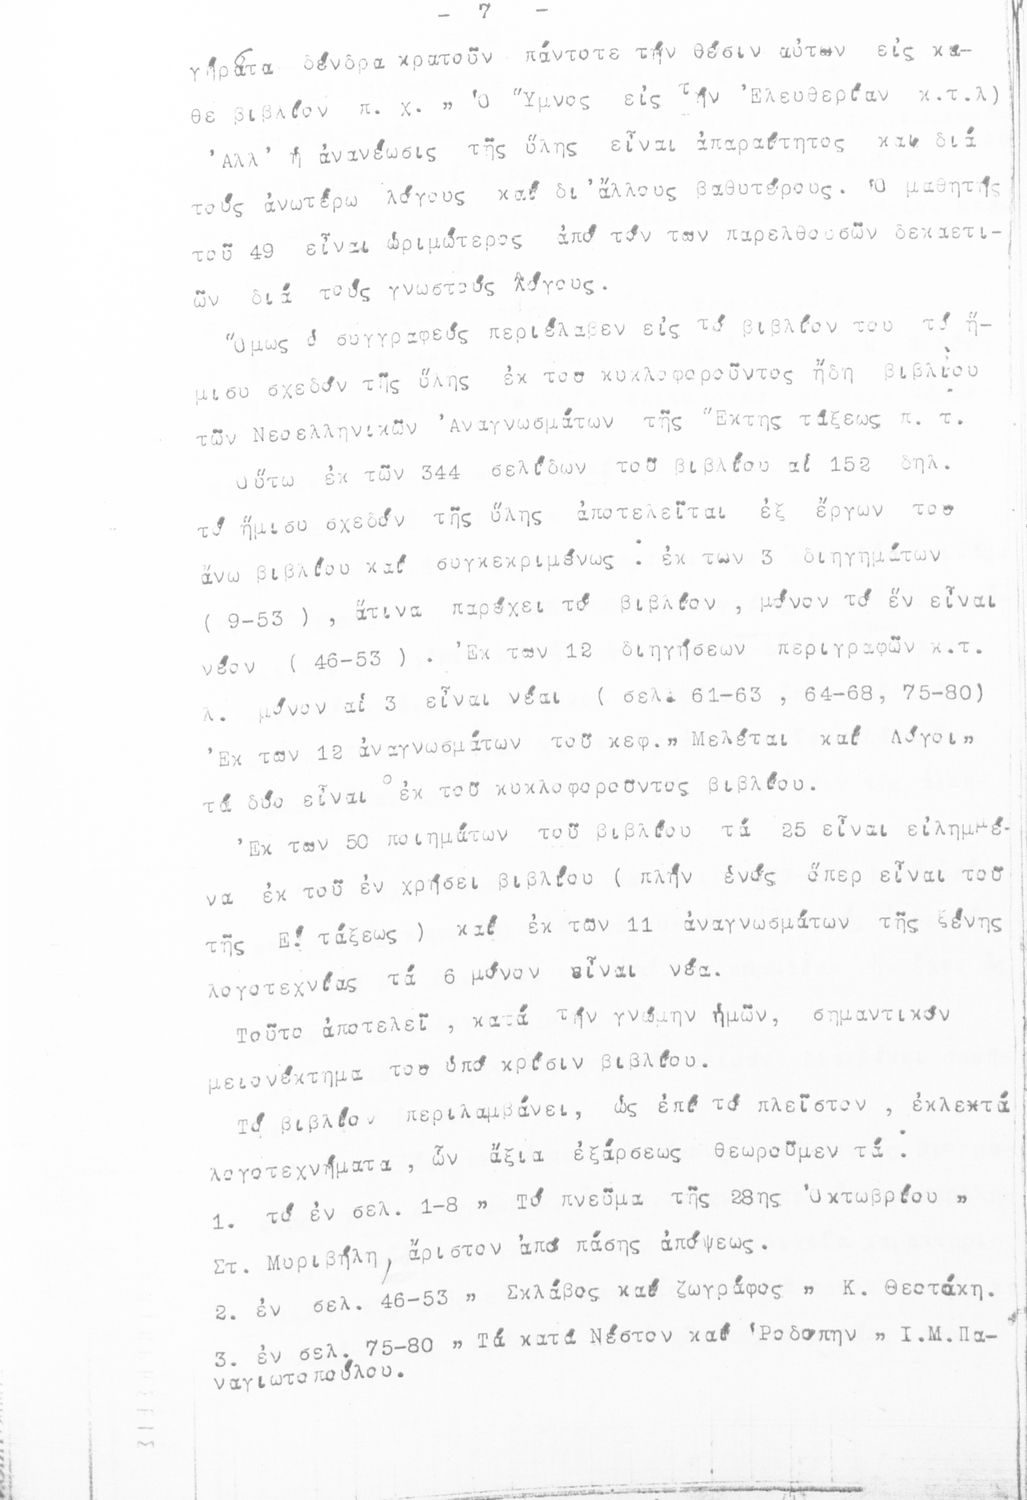 - 7 -
γήρατα δένδρα κρατοῦν πάντοτε τήν θέσιν αὐτων εἰς κα-
θε βιβλίον π. χ. " Ὁ Ὕμνος εἰς τήν Ἐλευθερίαν κ.τ.λ)
Ἀλλ' ἡ ἀνανέωσις τῆς ὕλης εἶναι ἀπαραίτητος και διά
τούς ἀνωτέρω λόγους καί δι'ἄλλους βαθυτέρους. Ὁ μαθητής
τοῦ 49 εἶναι ὡριμώτερος ἀπό τόν των παρελθουσῶν δεκαετι-
ῶν διά τούς γνωστούς λόγους.
Ὅμως ὁ συγγραφεύς περιέλαβεν εἰς τό βιβλίον του τό ἥ-
μισυ σχεδόν τῆς ὕλης ἐκ του κυκλοφοροῦντος ἤδη βιβλίου
τῶν Νεοελληνικῶν Ἀναγνωσμάτων τῆς Ἕκτης τάξεως π. τ.
Οὕτω ἐκ τῶν 344 σελίδων τοῦ βιβλίου αἱ 152 δηλ.
τό ἥμισυ σχεδόν τῆς ὕλης ἀποτελεῖται ἐξ ἔργων του
ἄνω βιβλίου καί συγκεκριμένως : ἐκ των 3 διηγημάτων
( 9-53 ) , ἅτινα παρέχει τό βιβλίον , μόνον τό ἕν εἶναι
νέον ( 46-53 ) . Ἐκ των 12 διηγήσεων περιγραφῶν κ.τ.
λ. μόνον αἱ 3 εἶναι νέαι ( σελ. 61-63 , 64-68, 75-80)
Ἐκ των 12 ἀναγνωσμάτων τοῦ κεφ." Μελέται καί Λόγοι"
τά δύο εἶναι ἐκ τοῦ κυκλοφορουντος βιβλίου.
Ἐκ των 50 ποιημάτων τοῦ βιβλίου τά 25 εἶναι εἰλημμέ-
να ἐκ τοῦ ἐν χρήσει βιβλίου ( πλήν ἑνός ὅπερ εἶναι τοῦ
τῆς Ε! τάξεως ) καί ἐκ των 11 ἀναγνωσμάτων τῆς ξένης
λογοτεχνίας τά 6 μόνον εἶναι νέα.
Τοῦτο ἀποτελεῖ , κατά τήν γνώμην ἡμῶν, σημαντικόν
μειονέκτημα του ὑπό κρίσιν βιβλίου.
Τό βιβλίον περιλαμβάνει, ὡς ἐπί τό πλεῖστον , ἐκλεκτά
λογοτεχνήματα , ὧν ἄξια ἐξάρσεως θεωροῦμεν τά :
1. τό ἐν σελ. 1-8 " Τό πνεῦμα τῆς 28ης Ὀκτωβρίου "
Στ. Μυριβήλη, ἄριστον ἀπό πάσης ἀπόψεως.
2. ἐν σελ. 46-53 " Σκλάβος καί ζωγράφος " Κ. Θεοτάκη.
3. ἐν σελ. 75-80 " Τά κατά Νέστον καί Ῥοδοπην " Ι.Μ.Πα-
ναγιωτοπούλου.